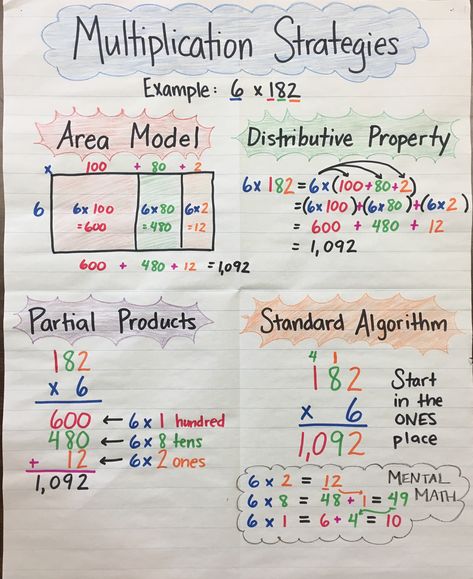 Multiplication Strategies
Example: 6 x 182
Area Model
x 100 + 80 + 2
6
6x100 =600
6x80 =480
6x2 =12
600 + 480 + 12 = 1,092
Distributive Property
6x182 = 6x(100+80+2)
=(6x100)+(6x80)+(6x2)
= 600 + 480 + 12
= 1,092
Partial Products
182
x 6
600 ← 6x1 hundred
480 ← 6x8 tens
+ 12 ← 6x2 ones
1,092
Standard Algorithm
4 1
182
x 6
1,092
Start
in the
ONES
place
MENTAL
MATH
6 x 2 = 12
6 x 8 = 48 + 1 = 49
6 x 1 = 6 + 4 = 10